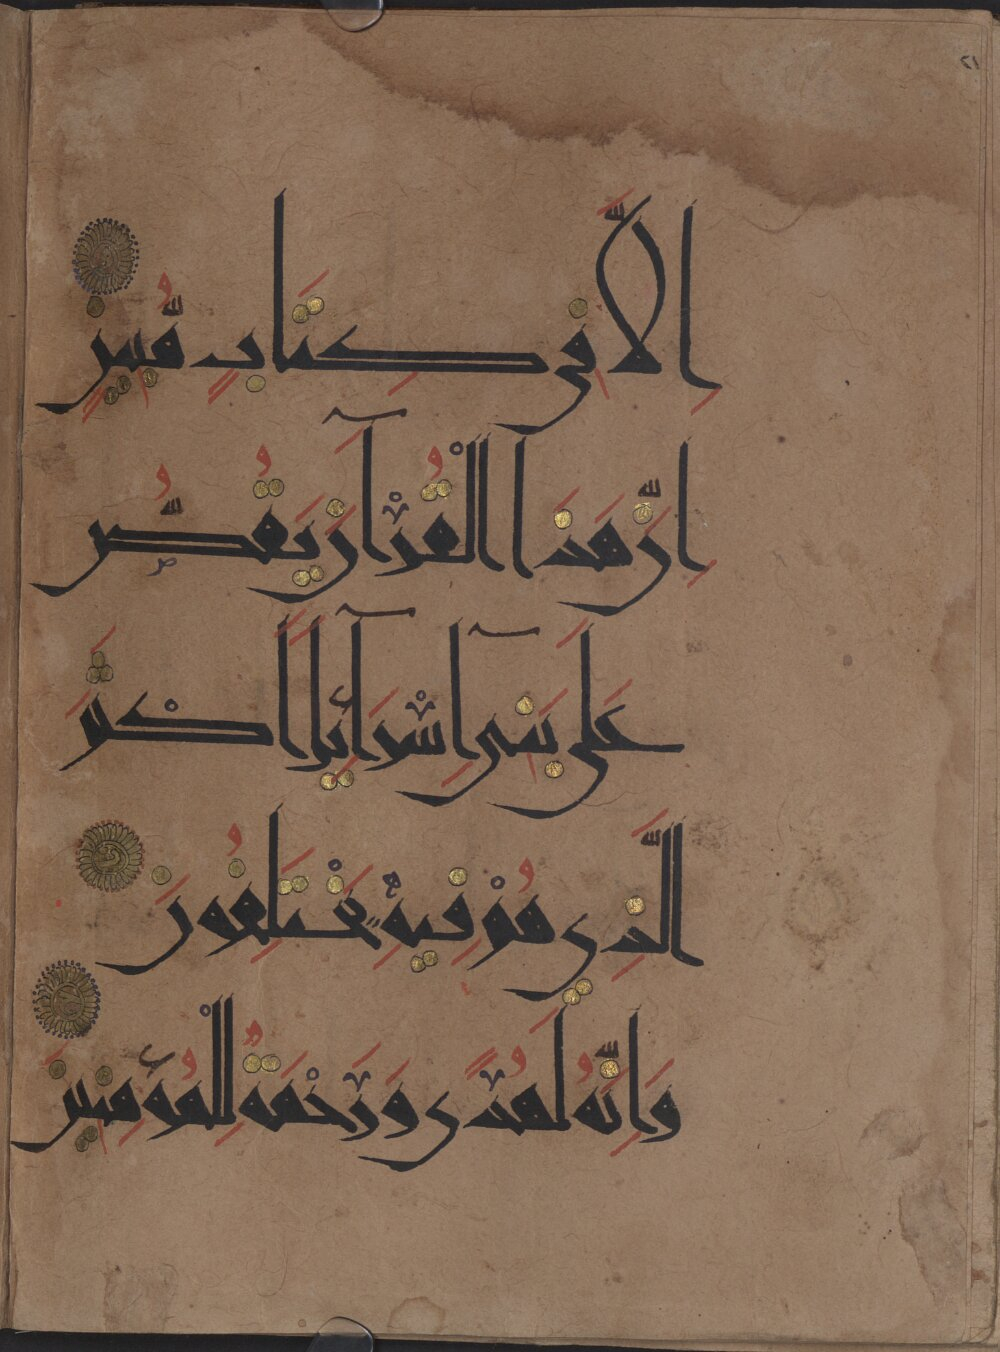 اِلَّا فِي كِتَابٍ مُّبِينٍ
اِنَّ هَذَا الْقُرْآنَ يَقُصُّ
عَلَى بَنِي اِسْرَآئِيلَ اَكْثَرَ
الَّذِي هُوْ فِيهِ يَخْتَلِفُونَ
وَاِنَّهُ لَهُدًى وَرَحْمَةٌ لِلْمُؤْمِنِينَ